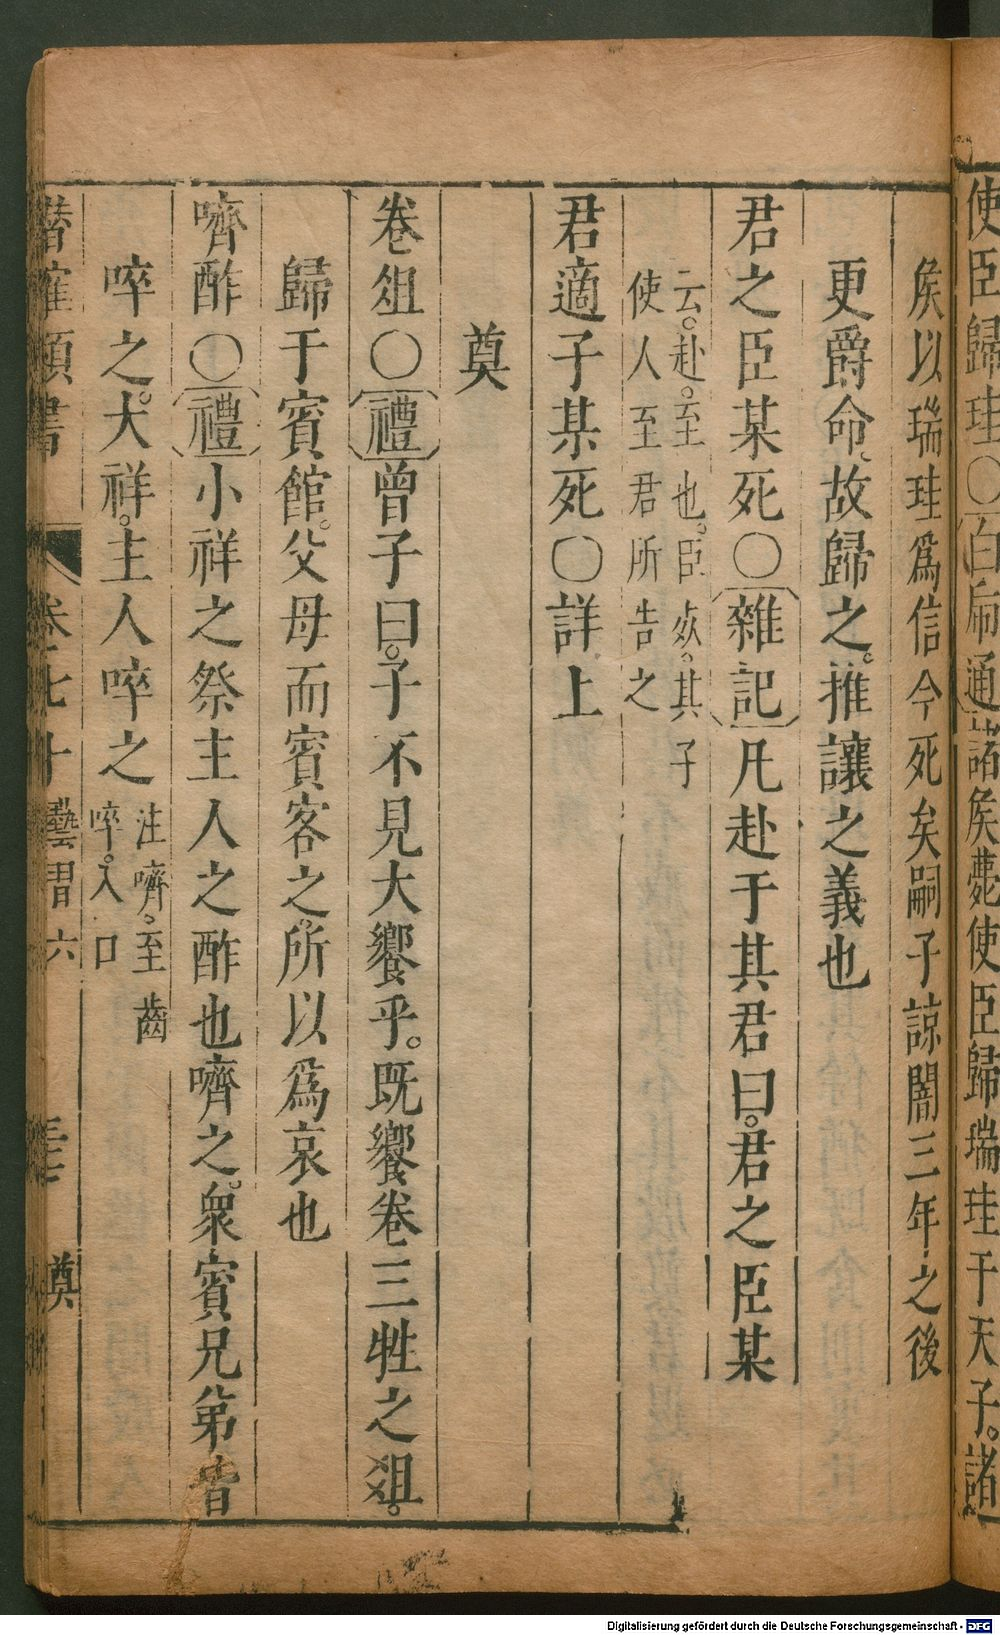 使臣歸珪○白扁通諸矦薨使臣歸瑞珪于天子。諸
矦以瑞珪爲信今死矣嗣子諒闇三年之後
更爵命故歸之。推讓之義也
君之臣某死○雜記凡赴于其君曰。君之臣某
云。赴。至也。臣死。其子
使人至君所告之
君適子某死○詳上
奠
卷俎○禮曾子曰。子不見大饗乎。既饗卷三牲之俎。
歸于賓館。父母而賓客之。所以爲哀也
嚌酢○禮小祥之祭主人之酢也嚌之。衆賓兄弟皆
啐之。大祥。主人啐之
注嚌。至齒
啐。入口
潛確類書 卷七十 藝習六 奠
Digitalisierung gefördert durch die Deutsche Forschungsgemeinschaft - DFG